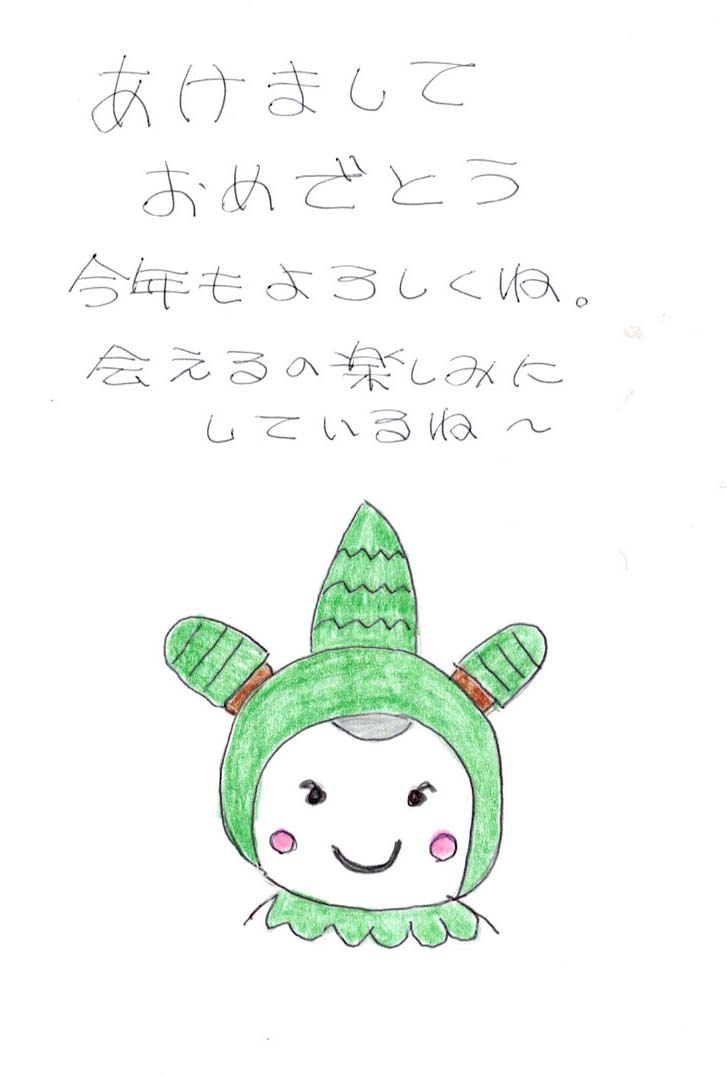 あけまして
おめでとう
今年もよろしくね。
会えるの楽しみに
しているね〜